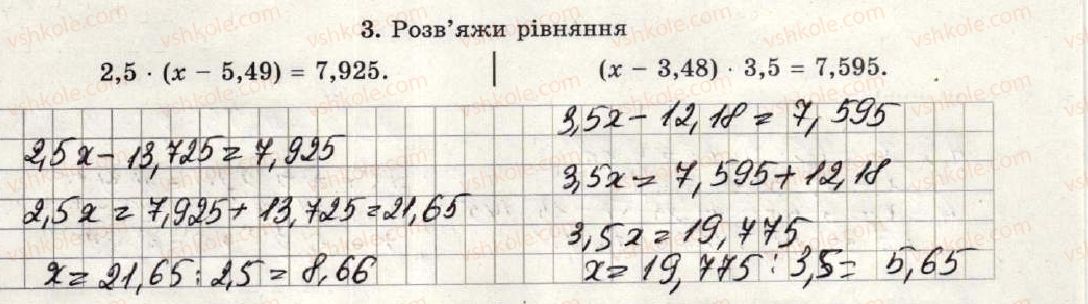 3. Розв'яжи рівняння
2,5 · (x − 5,49) = 7,925.
2,5x − 13,725 = 7,925
2,5x = 7,925 + 13,725 = 21,65
x = 21,65 : 2,5 = 8,66
(x − 3,48) · 3,5 = 7,595.
3,5x − 12,18 = 7,595
3,5x = 7,595 + 12,18
3,5x = 19,775
x = 19,775 : 3,5 = 5,65
vshkole.com